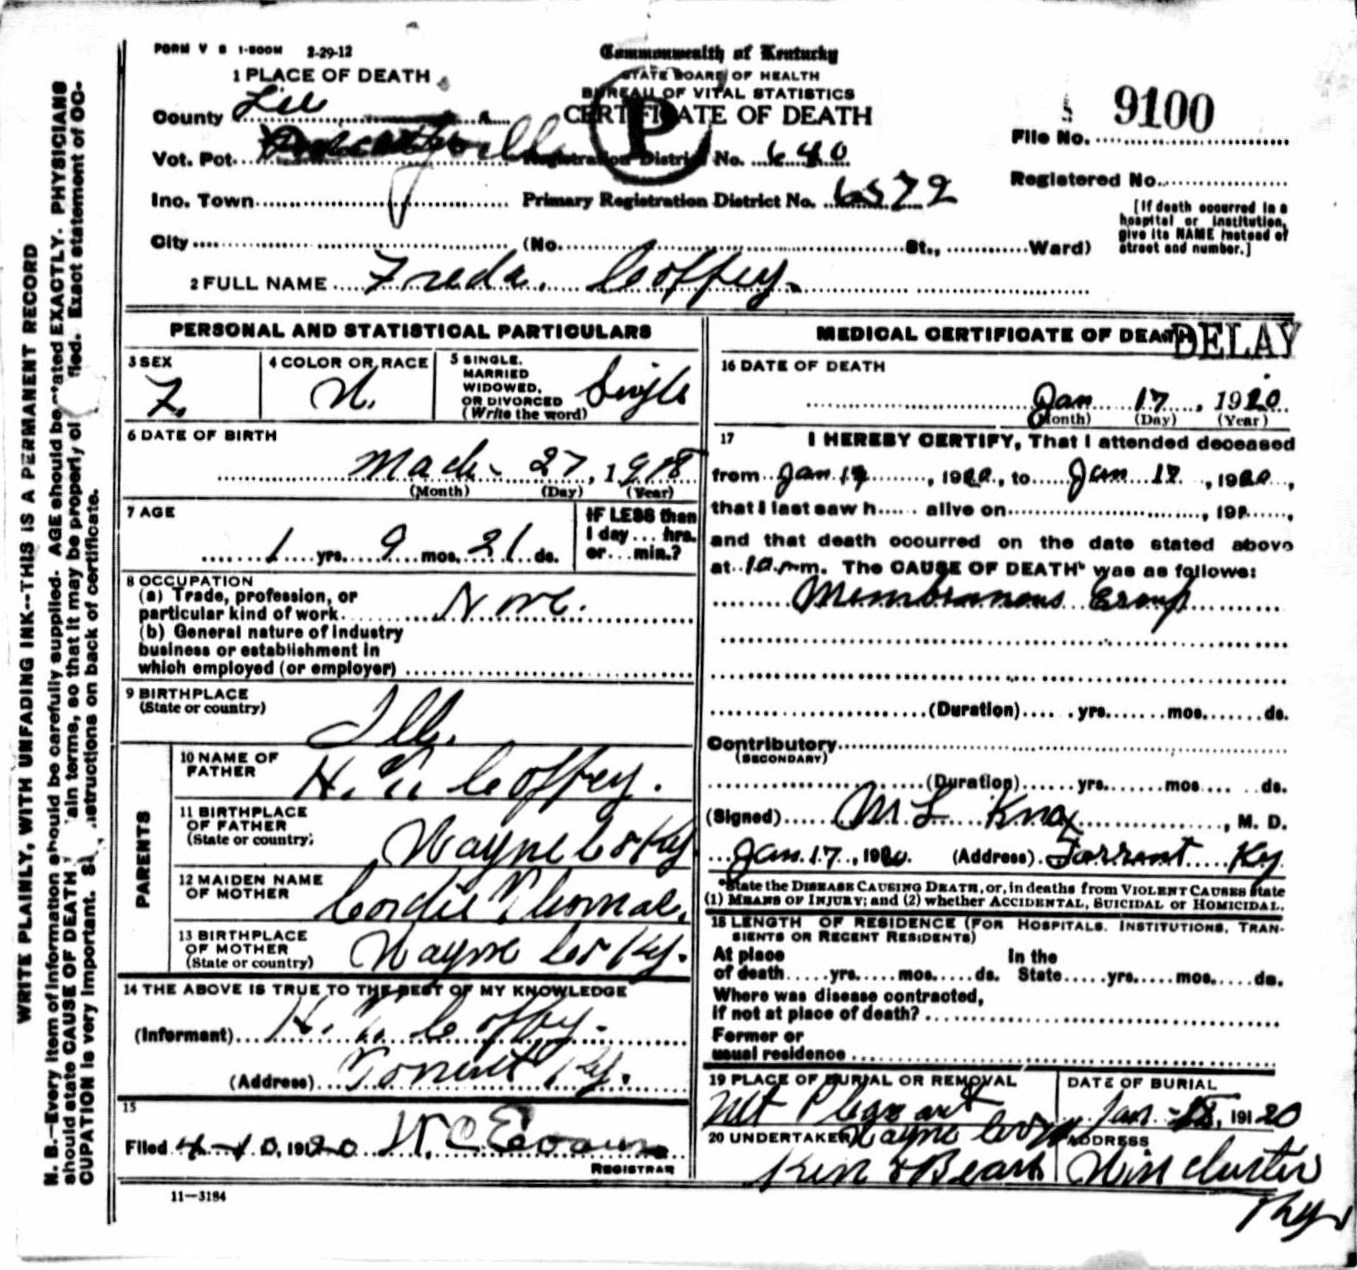 FORM V S 1-500M 2-29-12
Commonwealth of Kentucky
STATE BOARD OF HEALTH
BUREAU OF VITAL STATISTICS
CERTIFICATE OF DEATH
P
1 PLACE OF DEATH
County Lee
Vot. Pot.
Registration District No. 640
Ino. Town
Primary Registration District No. 6572
City (No. St., Ward)
File No. 9100
Registered No.
[If death occurred in a hospital or institution, give its NAME instead of street and number.]
2 FULL NAME Freda Coffey.
PERSONAL AND STATISTICAL PARTICULARS
3 SEX F.
4 COLOR OR RACE W.
5 SINGLE, MARRIED WIDOWED, OR DIVORCED (Write the word) Single
6 DATE OF BIRTH
Mach 27, 1918
(Month) (Day) (Year)
7 AGE
1 yrs. 9 mos. 21 ds.
IF LESS than 1 day... hrs. or... min.?
8 OCCUPATION
(a) Trade, profession, or particular kind of work None.
(b) General nature of industry business or establishment in which employed (or employer)
9 BIRTHPLACE
(State or country)
Ill.
PARENTS
10 NAME OF FATHER H. Coffey.
11 BIRTHPLACE OF FATHER (State or country) Wayne Co Ky
12 MAIDEN NAME OF MOTHER Cordie Thomas.
13 BIRTHPLACE OF MOTHER (State or country) Wayne Co Ky.
14 THE ABOVE IS TRUE TO THE BEST OF MY KNOWLEDGE
(Informant) H. Coffey.
(Address) Torrent Ky.
15
Filed 4-10, 1920 W C Evans
REGISTRAR
11-3184
MEDICAL CERTIFICATE OF DEATH
DELAY
16 DATE OF DEATH
Jan 17, 1920
(Month) (Day) (Year)
17 I HEREBY CERTIFY, That I attended deceased
from Jan 17, 1920, to Jan 17, 1920,
that I last saw h alive on , 191 ,
and that death occurred on the date stated above
at m. The CAUSE OF DEATH* was as follows:
Membranous Croup
(Duration) yrs. mos. ds.
Contributory
(SECONDARY)
(Duration) yrs. mos. ds.
(Signed) M L Knox, M. D.
Jan 17, 1920 (Address) Torrent Ky
*State the DISEASE CAUSING DEATH, or, in deaths from VIOLENT CAUSES state
(1) MEANS OF INJURY; and (2) whether ACCIDENTAL, SUICIDAL or HOMICIDAL.
18 LENGTH OF RESIDENCE (FOR HOSPITALS, INSTITUTIONS, TRANSIENTS OR RECENT RESIDENTS)
At place of death yrs. mos. ds. In the State yrs. mos. ds.
Where was disease contracted,
If not at place of death?
Former or
usual residence
19 PLACE OF BURIAL OR REMOVAL
Mt Pleasant
Wayne Co Ky
DATE OF BURIAL
Jan 18, 1920
20 UNDERTAKER
ADDRESS
Winchester
Ky
WRITE PLAINLY, WITH UNFADING INK--THIS IS A PERMANENT RECORD
N. B.—Every item of information should be carefully supplied. AGE should be stated EXACTLY. PHYSICIANS
should state CAUSE OF DEATH ain terms, so that it may be properly cl fied. Exact statement of OC-
CUPATION is very important. S instructions on back of certificate.